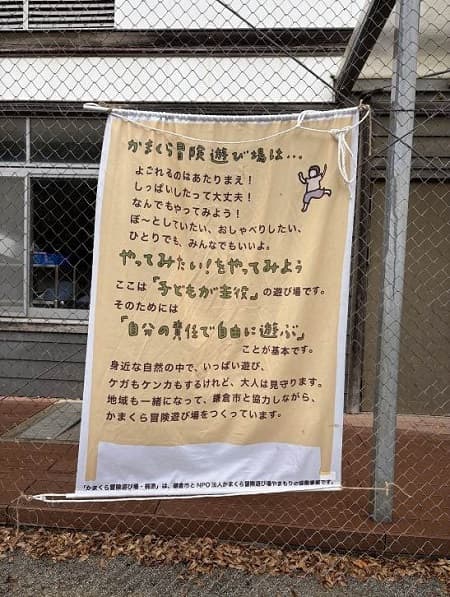 かまくら冒険遊び場は…
よごれるのはあたりまえ！
しっぱいしたって大丈夫！
なんでもやってみよう！
ぼ〜としていたい、おしゃべりしたい、
ひとりでも、みんなでもいいよ。
やってみたい！をやってみよう
ここは「子どもが主役」の遊び場です。
そのためには
「自分の責任で自由に遊ぶ」
ことが基本です。
身近な自然の中で、いっぱい遊び、
ケガもケンカもするけれど、大人は見守ります。
地域も一緒になって、鎌倉市と協力しながら、
かまくら冒険遊び場をつくっています。
「かまくら冒険遊び場・梶原」は、鎌倉市とNPO法人かまくら冒険遊び場やまもりの協働事業です。